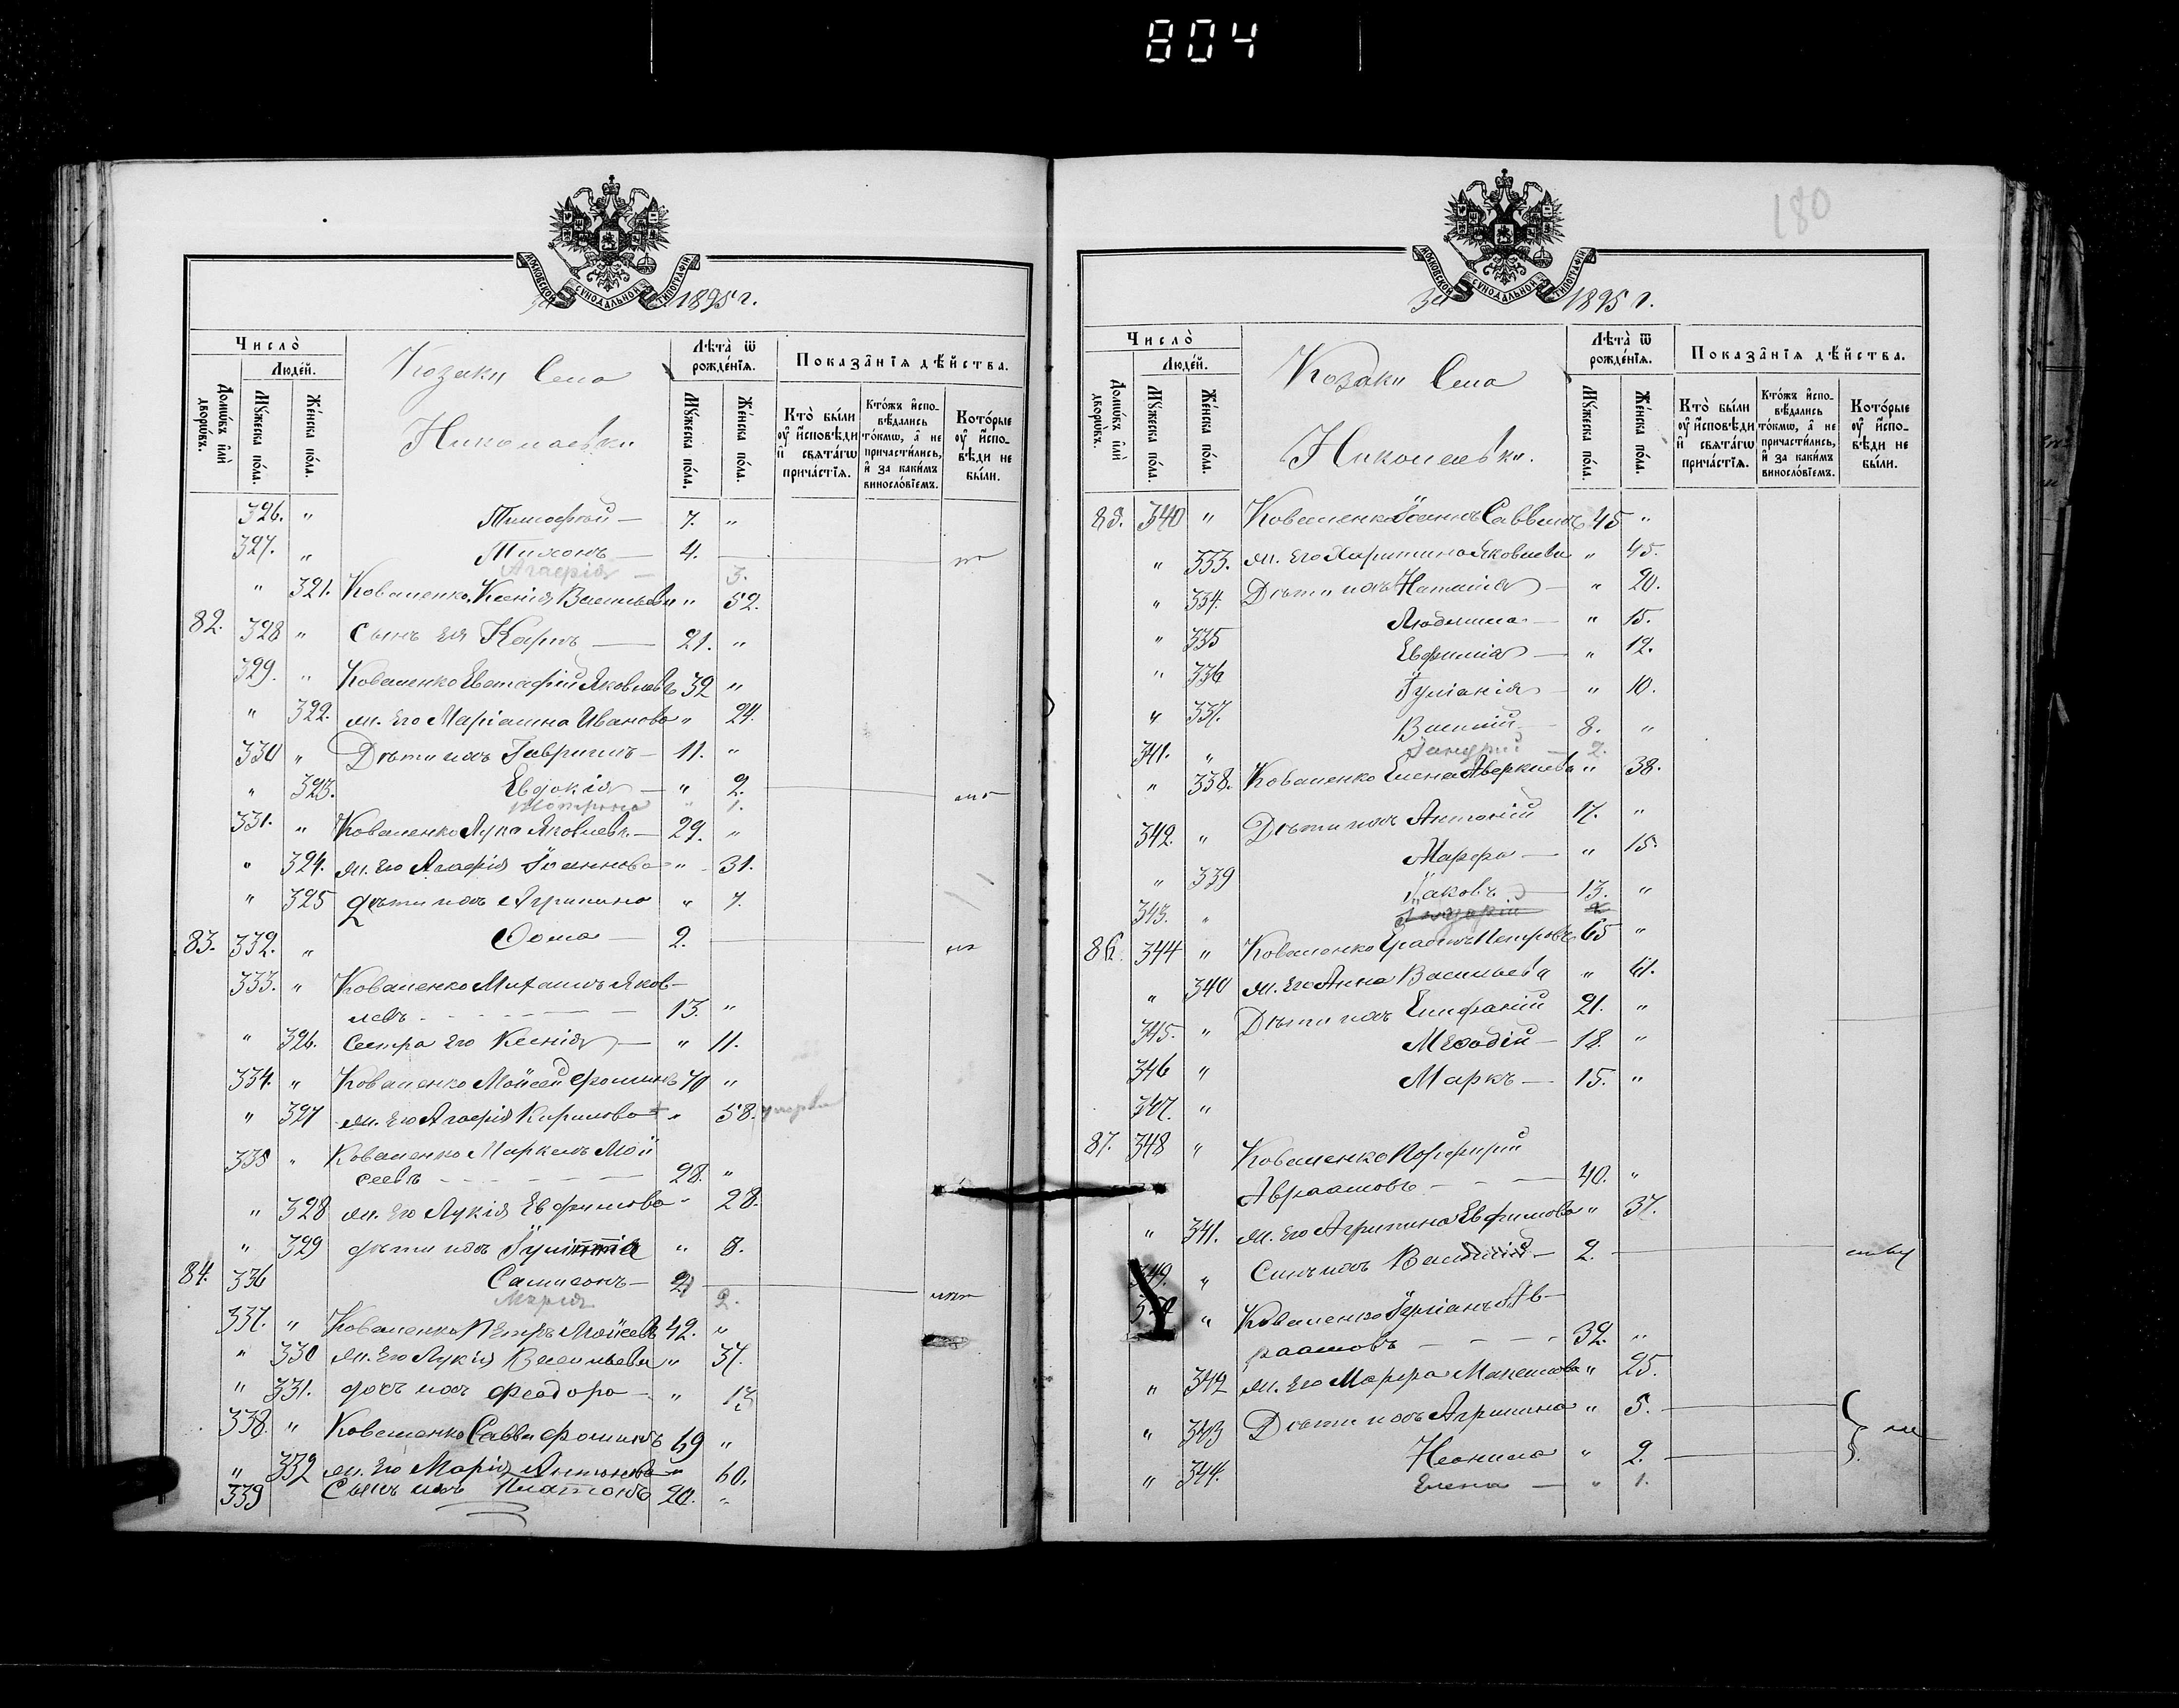 804
МОСКОВСКОЙ СѴНОДАЛЬНОЙ ТИПОГРАФІИ
За 1895 г.
Число̀
Люде́й.
Домѡ́въ и҆лѝ дворѡ́въ.
Мꙋ́жеска по́ла.
Же́нска по́ла.
Козаки Села
Николаевки
Лѣ́та ѿ рожде́нїѧ.
Мꙋ́жеска по́ла.
Же́нска по́ла.
Показа̂нїѧ дѣ́йства.
Кто̀ бы́ли оу҆ и҆́сповѣди и҆ свѧта́гѡ прича́стїѧ.
Кто́жъ и҆спо-вѣ́дались то́кмѡ, а҆ не причасти́лись, и҆ за каки́мъ виносло́вїемъ.
Кото́рые оу҆ и҆спо-вѣди не бы́ли.
326. " Тимофей — 7. "
327. " Тихонъ — 4.
Агафія — 3.
" 321. Коваленко Ксенія Васильева " 52.
82. 328 " Сынъ ея Карпъ — 21. "
329. " Коваленко Евстафій Яковлевъ 32 "
" 322. ж. его Маріанна Иванова " 24.
330 " Дѣти ихъ Гавріилъ — 11. "
" 323. Евдокія — " 2.
" 1.
331. " Коваленко Лука Яковлевъ — 29. "
" 324. ж. его Агафія Іоаннова " 31.
" 325 дѣти ихъ Агрипина " 7.
83. 332. " Ѳома — 2.
333. " Коваленко Михаилъ Яков-
левъ — 13. "
" 326. Сестра его Ксенія — " 11.
334. " Коваленко Мойсей Фоминъ 70 "
" 327 ж. его Агафія Кирилова + " 58. умерла
335 " Коваленко Маркелъ Мой
сеевъ — 28. "
" 328 ж. его Лукія Евфимова " 28.
" 329 дѣти ихъ Іуліанія " 8.
84. 336 Сампсонъ — 2
Марія 2.
337. " Коваленко Петръ Мойсеевъ 42. "
" 330 ж. его Лукія Васильева " 37.
" 331. дочь ихъ Феодора — " 13
338. " Коваленко Савва Фоминъ 69 "
" 332 ж. его Марія Антонова " 60.
339 Сынъ ихъ Платонъ 20. "
180
МОСКОВСКОЙ СѴНОДАЛЬНОЙ ТИПОГРАФІИ
За 1895 г.
Число̀
Люде́й.
Домѡ́въ и҆лѝ дворѡ́въ.
Мꙋ́жеска по́ла.
Же́нска по́ла.
Козаки Села
Николаевки.
Лѣ́та ѿ рожде́нїѧ.
Мꙋ́жеска по́ла.
Же́нска по́ла.
Показа̂нїѧ дѣ́йства.
Кто̀ бы́ли оу҆ и҆́сповѣди и҆ свѧта́гѡ прича́стїѧ.
Кто́жъ и҆спо-вѣ́дались то́кмѡ, а҆ не причасти́лись, и҆ за каки́мъ виносло́вїемъ.
Кото́рые оу҆ и҆спо-вѣди не бы́ли.
85. 340 " Коваленко Іоаннъ Саввинъ 45 "
" 333. ж. его Харитина Яковлева " 45.
" 334. Дѣти ихъ Наталія — " 20.
" 335 Людмила — " 15.
" 336 Евфимія — " 12.
" 337. Іуліанія — " 10.
341. " Василій — 8. "
2.
" 338. Коваленко Елена Аверкіева " 38.
342. " Дѣти ихъ Антоній 17. "
" 339 Марфа — " 15.
343. " Іаковъ — 13. "
86. 344 " Коваленко Ерастъ Петровъ 65 "
" 340 ж. его Анна Васильева " 61.
345. " Дѣти ихъ Епифаній 21. "
346 " Меѳодій — 18. "
347. " Маркъ — 15. "
87. 348 " Коваленко Порфирій
Авраамовъ — 40. "
" 341. ж. его Агрипина Евфимова " 37.
349. " Сынъ ихъ Василій — 2.
350 " Коваленко Іуліанъ Ав-
раамовъ — 32. "
" 342 ж. его Марфа Максимова " 25.
" 343 Дѣти ихъ Агрипина " 5.
" 344. Неонила " 2.
Елена — " 1.